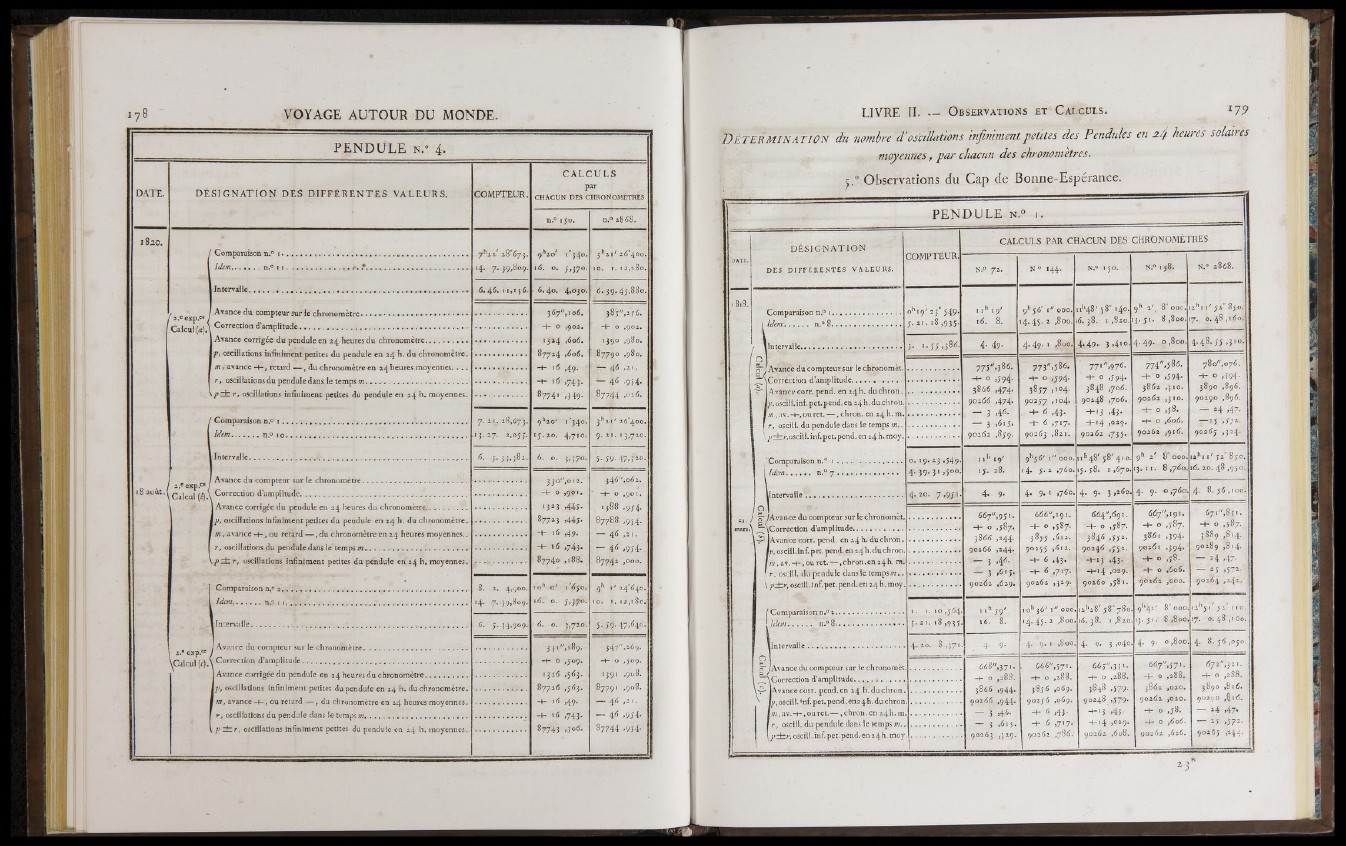 178 VOYAGE AUTOUR DU MONDE.
PENDULE N.° 4.
DATE. DÉSIGNATION DES DIFFÉRENTES VALEURS. COMPTEUR. CALCULS par CHACUN DES CHRONOMÈTRES
n.° 150. n.° 2868.
1820.
18 août.
2.e exp.ce Calcul (a).
Comparaison n.° 1 7h 22' 28"673. 9h 20' 1"340. 3h 21' 26"400.
Idem n.° 11 14. 7. 39,809. 16. 0. 5,370. 10. 1. 12,280.
Intervalle 6. 46. 11,136. 6. 40. 4,030. 6. 39. 45,880.
Avance du compteur sur le chronomètre 367",106. 385",256.
Correction d'amplitude + 0 ,902. + 0 ,902.
Avance corrigée du pendule en 24 heures du chronomètre 1324 ,606. 1390 ,980.
p, oscillations infiniment petites du pendule en 24 h. du chronomètre. 87724 ,606. 87790 ,980.
m, avance +, retard —, du chronomètre en 24 heures moyennes. + 16 ,49. — 46 ,21.
r, oscillations du pendule dans le temps m + 16 ,743. — 46 ,954.
p ± r, oscillations infiniment petites du pendule en 24 h. moyennes. 87741 ,349. 87744 ,026.
2.e exp.ce Calcul (b).
Comparaison n.° 1 7. 22. 28,673. 9h 20' 1"340. 3h 21' 26"400.
Idem n.° 10 13. 27. 2,055. 15. 20. 4,710. 9. 21. 13,720.
Intervalle 6. 5. 33,382. 6. 0. 3,370. 5. 59. 47,320.
Avance du compteur sur le chronomètre 330",012. 346",062.
Correction d'amplitude + 0 ,901. + 0 ,901.
Avance corrigée du pendule en 24 heures du chronomètre 1323 ,445. 1388 ,954.
p, oscillations infiniment petites du pendule en 24 h. du chronomètre. 87723 ,445. 87788 ,954.
m, avance +, ou retard —, du chronomètre en 24 heures moyennes. + 16 ,49. — 46 ,21.
r, oscillations du pendule dans le temps m + 16 ,743. — 46 ,954.
p ± r, oscillations infiniment petites du pendule en 24 h. moyennes. 87740 ,188. 87742 ,000.
2.e exp.ce Calcul (c).
Comparaison n.° 2 8. 2. 4,900. 10h 0' 1"650. 4h 1' 24"640.
Idem n.° 11 14. 7. 39,809. 16. 0. 5,370. 10. 1. 12,280.
Intervalle 6. 5. 34,909. 6. 0. 3,720. 5. 59. 47,640.
Avance du compteur sur le chronomètre 331",189. 347",269.
Correction d'amplitude + 0 ,509. + 0 ,509.
Avance corrigée du pendule en 24 heures du chronomètre 1326 ,563. 1391 ,908.
p, oscillations infiniment petites du pendule en 24 h. du chronomètre. 87726 ,563. 87791 ,908.
m, avance +, ou retard —, du chronomètre en 24 heures moyennes. + 16 ,49. — 46 ,21.
r, oscillations du pendule dans le temps m + 16 ,743. — 46 ,954.
p ± r, oscillations infiniment petites du pendule en 24 h. moyennes. 87743 ,306. 87744 ,954.
LIVRE II. — OBSERVATIONS ET CALCULS. 179
DÉTERMINATION du nombre d'oscillations infiniment petites des Pendules en 24 heures solaires
moyennes, par chacun des chronomètres.
5.° Observations du Cap de Bonne-Espérance.
PENDULE N.° 1.
DATE. DÉSIGNATION DES DIFFÉRENTES VALEURS. COMPTEUR. CALCULS PAR CHACUN DES CHRONOMÈTRES
N.° 72. N.° 144. N.° 150. N.° 158. N.° 2868.
1818.
mars.
Calcul (a).
Comparaison n.° 1 0h 19' 23" 549. 11h 19' 9h 56' 1" 000. 11h 48' 58" 140. 9h 2' 8" 000. 12h 11' 52" 850.
Idem n.° 8 5. 21. 18 ,935. 16. 8. 14. 45. 2 ,800. 16. 38. 1 ,820. 13. 51. 8 ,800. 17. 0. 48 ,160.
Intervalle 5. 1. 55 ,386. 4. 49. 4. 49. 1 ,800. 4. 49. 3 ,410. 4. 49. 0 ,800. 4. 48. 55 ,310.
Avance du compteur sur le chronomèt. 773",386. 773",386. 771",976. 774",586. 780",076.
Correction d'amplitude + 0 ,594. + 0 ,594. + 0 ,594. + 0 ,594. + 0 ,594.
Avance corr. pend. en 24 h. du chron. 3866 ,474. 3857 ,104. 3848 ,706. 3862 ,310. 3890 ,896.
p, oscill. inf. pet. pend. en 24 h. du chron. 90266 ,474. 90257 ,104. 90248 ,706. 90262 ,310. 90290 ,896.
m, av. +, ou ret. —, chron. en 24 h. m. — 3 ,46. + 6 ,43. +13 ,43. + 0 ,58. — 24 ,47.
r, oscill. du pendule dans le temps m. — 3 ,615. + 6 ,717. +14 ,029. + 0 ,606. —25 ,572.
p±r, oscill. inf. pet. pend. en 24 h. moy. 90262 ,859. 90263 ,821. 90262 ,735. 90262 ,916. 90265 ,324.
Calcul (b).
Comparaison n.° 1 0. 19. 23 ,549. 11h 19' 9h 56' 1" 000. 11h 48' 58" 410. 9h 2' 8" 000. 12h 11' 52" 850.
Idem n.° 7 4. 39. 31 ,500. 15. 28. 14. 5. 2 ,760. 15. 58. 1 ,670. 13. 11. 8 ,760. 16. 20. 48 ,950.
Intervalle 4. 20. 7 ,951. 4. 9. 4. 9. 1 ,760. 4. 9. 3 ,260. 4. 9. 0 ,760. 4. 8. 56 ,100.
Avance du compteur sur le chronomèt. 667",951. 666",191. 664",691. 667",191. 671",851.
Correction d'amplitude + 0 ,587. + 0 ,587. + 0 ,587. + 0 ,587. + 0 ,587.
Avance corr. pend. en 24 h. du chron. 3866 ,244. 3855 ,612. 3846 ,552. 3861 ,394. 3889 ,814.
p, oscill. inf. pet. pend. en 24 h. du chron. 90266 ,244. 90255 ,612. 90246 ,552. 90261 ,394. 90289 ,814.
m, av. +, ou ret. —, chron. en 24 h. m. — 3 ,46. + 6 ,43. +13 ,43. + 0 ,58. — 24 ,47.
r, oscill. du pendule dans le temps m. — 3 ,615. + 6 ,717. +14 ,029. + 0 ,606. — 25 ,572.
p±r, oscill. inf. pet. pend. en 24 h. moy. 90262 ,629. 90262 ,329. 90260 ,581. 90262 ,000. 90264 ,242.
Calcul (c).
Comparaison n.° 2 1. 1. 10 ,564. 11h 59' 10h 36' 1" 000. 12h 28' 58" 780. 9h 42' 8" 000. 12h 51' 52" 110.
Idem n.° 8 5. 21. 18 ,935. 16. 8. 14. 45. 2 ,800. 16. 38. 1 ,820. 13. 51. 8 ,800. 17. 0. 48 ,160.
Intervalle 4. 20. 8 ,371. 4. 9. 4. 9. 1 ,800. 4. 9. 3 ,040. 4. 9. 0 ,800. 4. 8. 56 ,050.
Avance du compteur sur le chronomèt. 668",371. 666",571. 665",331. 667",571. 672",321.
Correction d'amplitude + 0 ,288. + 0 ,288. + 0 ,288. + 0 ,288. + 0 ,288.
Avance corr. pend. en 24 h. du chron. 3866 ,944. 3856 ,069. 3848 ,579. 3862 ,020. 3890 ,816.
p, oscill. inf. pet. pend. en 24 h. du chron. 90266 ,944. 90256 ,069. 90248 ,579. 90262 ,020. 90290 ,816.
m, av. +, ou ret. —, chron. en 24 h. m. — 3 ,46. + 6 ,43. +13 ,43. + 0 ,58. — 24 ,47.
r, oscill. du pendule dans le temps m. — 3 ,615. + 6 ,717. +14 ,029. + 0 ,606. — 25 ,572.
p±r, oscill. inf. pet. pend. en 24 h. moy. 90263 ,329. 90262 ,786. 90262 ,608. 90262 ,626. 90265 ,244.
23*